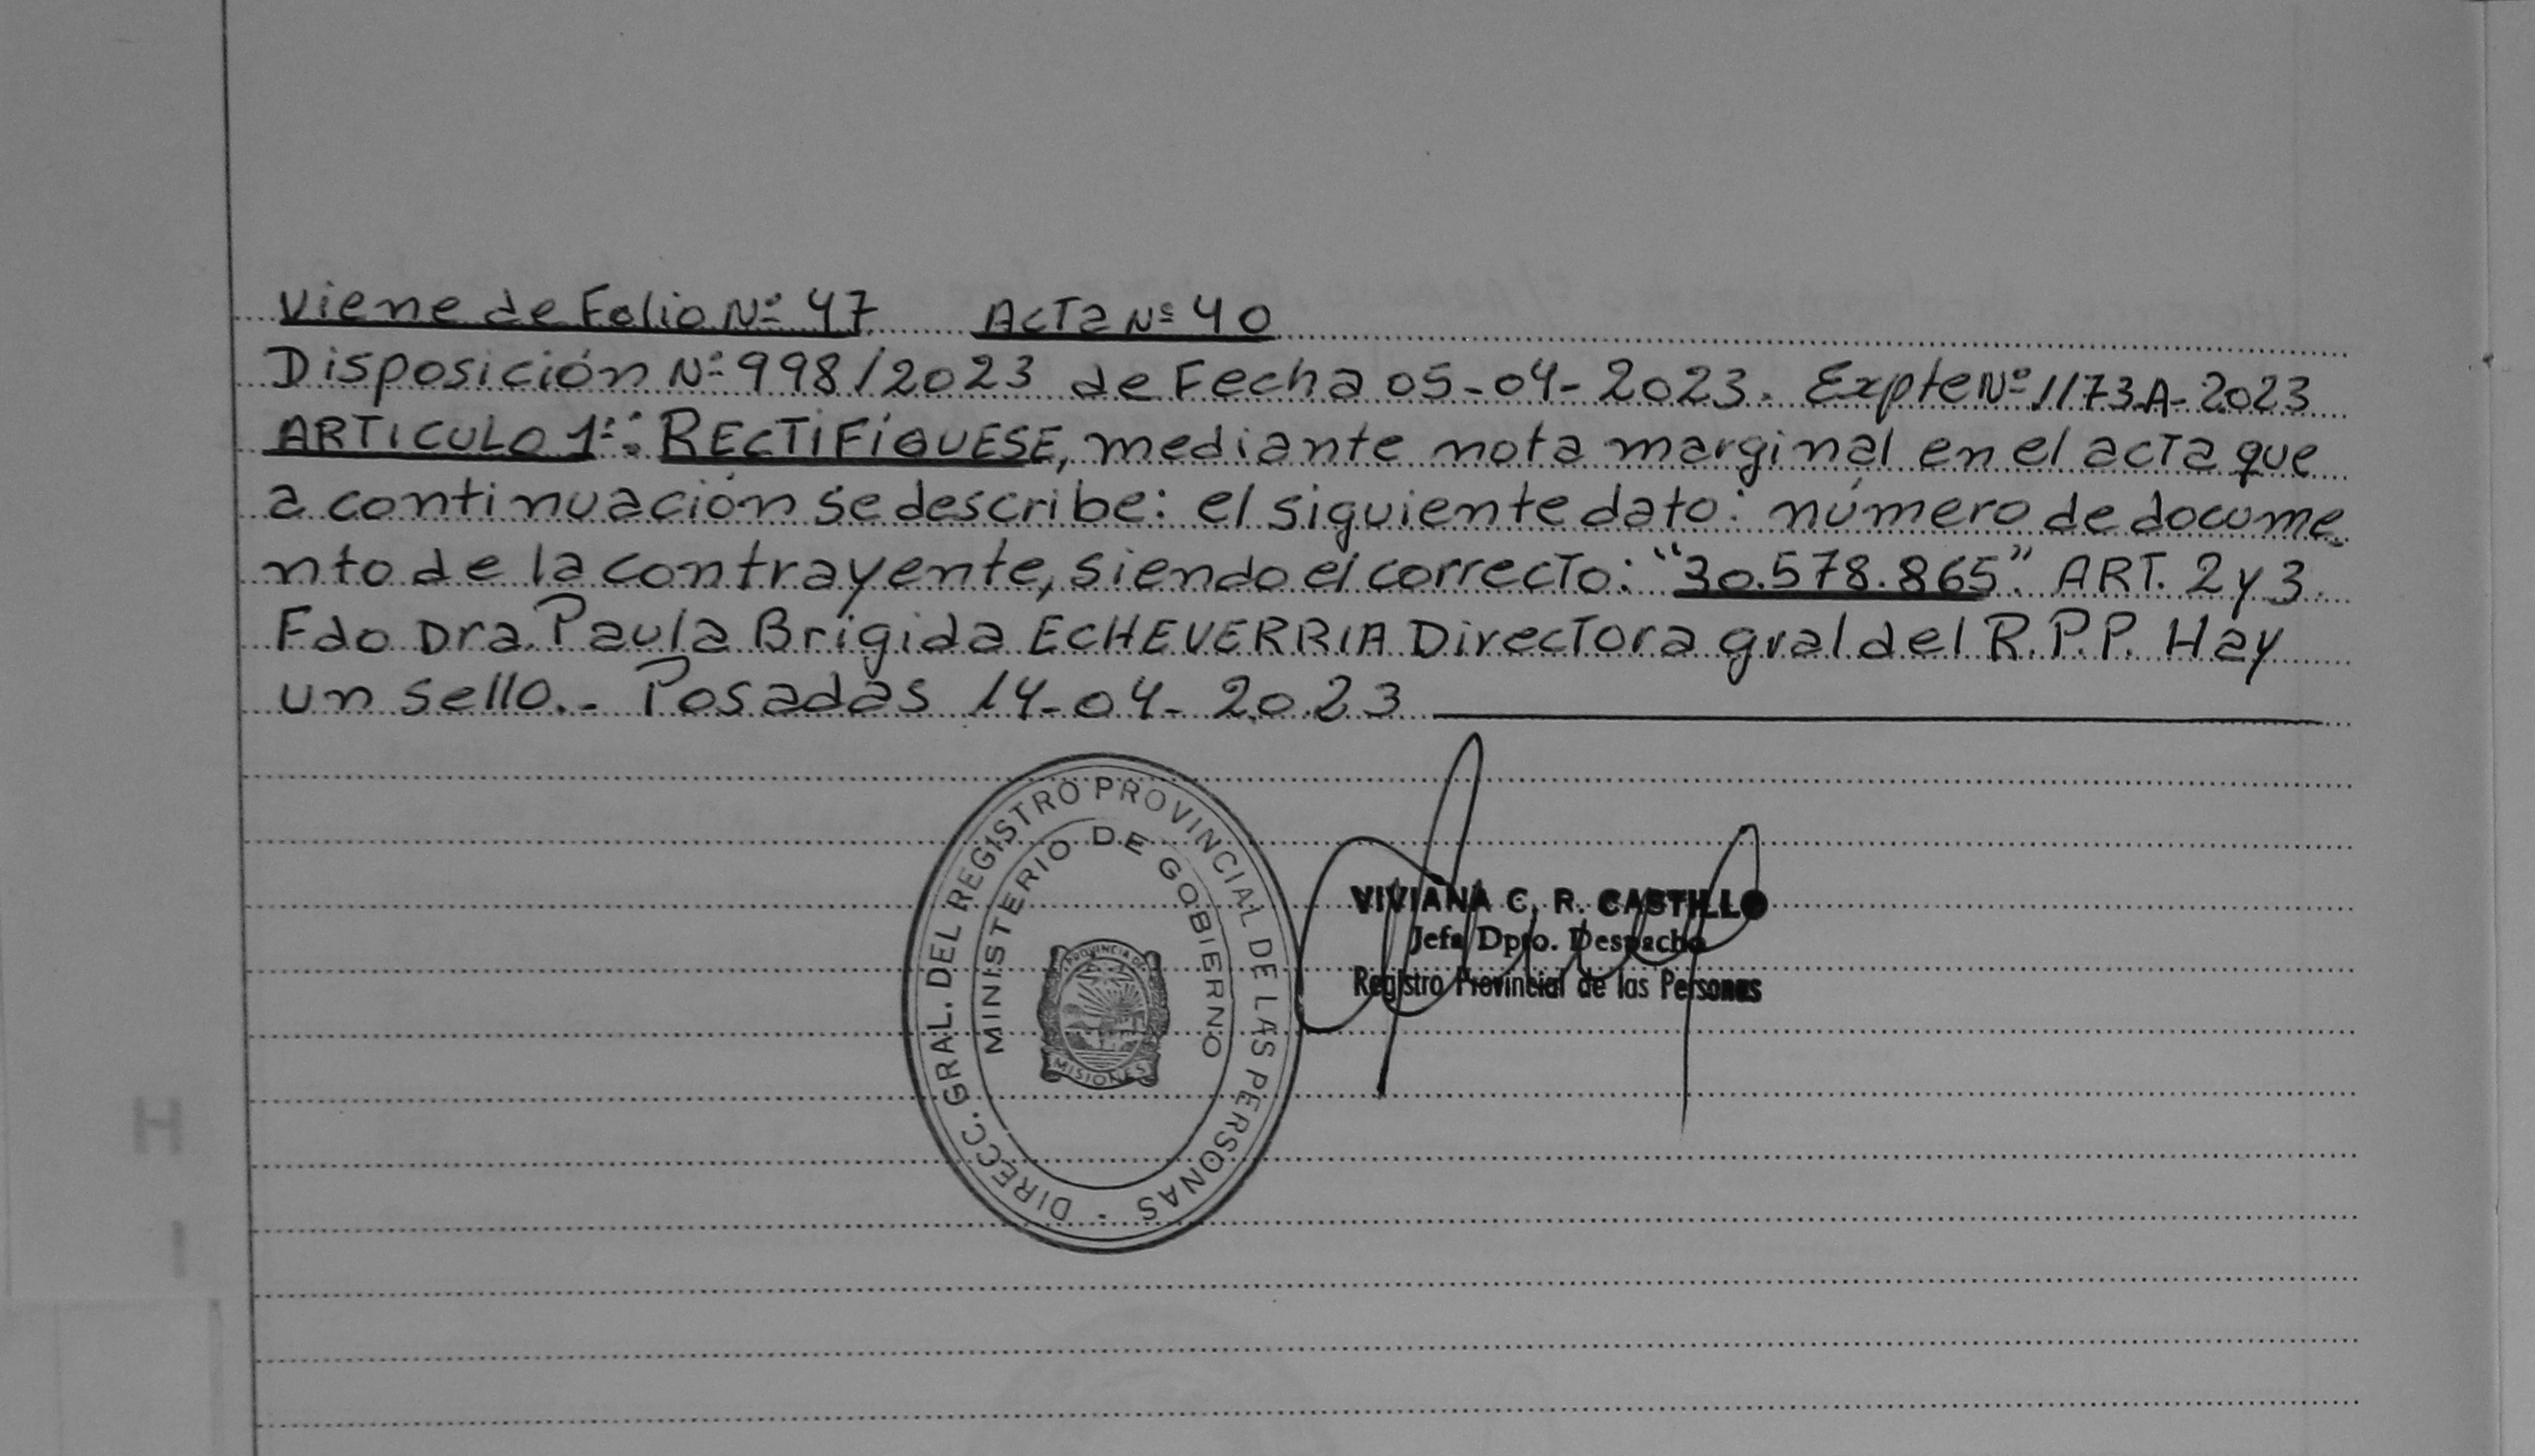 Viene de Folio Nº 47 Acta Nº 40
Disposición Nº 998/2023 de Fecha 05-04-2023. Expte Nº 1173A-2023
ARTICULO 1º: RECTIFÍQUESE, mediante nota marginal en el acta que
a continuación se describe: el siguiente dato: número de docume-
nto de la contrayente, siendo el correcto: "30.578.865". ART. 2 y 3.
Fdo Dra. Paula Brígida ECHEVERRIA Directora gral del R.P.P. Hay
un sello.- Posadas 14-04-2023
DIRECC. GRAL. DEL REGISTRO PROVINCIAL DE LAS PERSONAS
MINISTERIO DE GOBIERNO
PROVINCIA DE
MISIONES
VIVIANA C. R. CASTILLO
Jefa Dpto. Despacho
Registro Provincial de las Personas
H
I